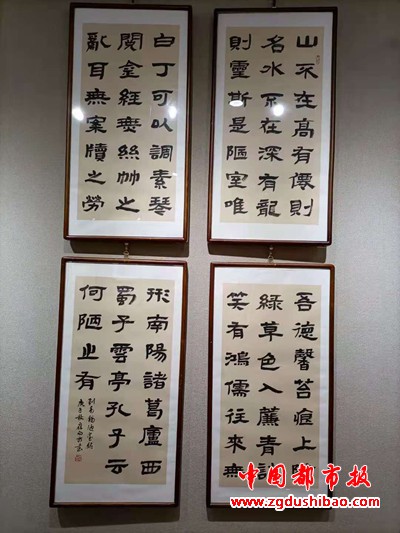 山不在高有僊則
名水不在深有龍
則靈斯是陋室唯
吾德馨苔痕上階
綠草色入簾青談
笑有鴻儒往來無
白丁可以調素琴
閱金經無絲竹之
亂耳無案牘之勞
形南陽諸葛廬西
蜀子雲亭孔子云
何陋之有
劉禹錫陋室銘
中國都市报
www.zgdushibao.com